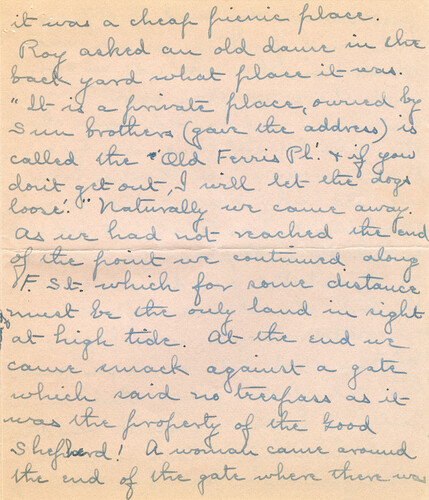 it was a cheap picnic place.
Roy asked an old dame in the
back yard what place it was.
"It is a private place, owned by
Sun brothers (gave the address) is
called the "Old Ferris Pl." & if you
don't get out, I will let the dogs
loose." Naturally we came away.
As we had not reached the end
of the point we continued along
F. St. which for some distance
must be the only land in sight
at high tide. At the end we
came smack against a gate
which said no trespass as it
was the property of the Good
Shepherd! A woman came around
the end of the gate where there was